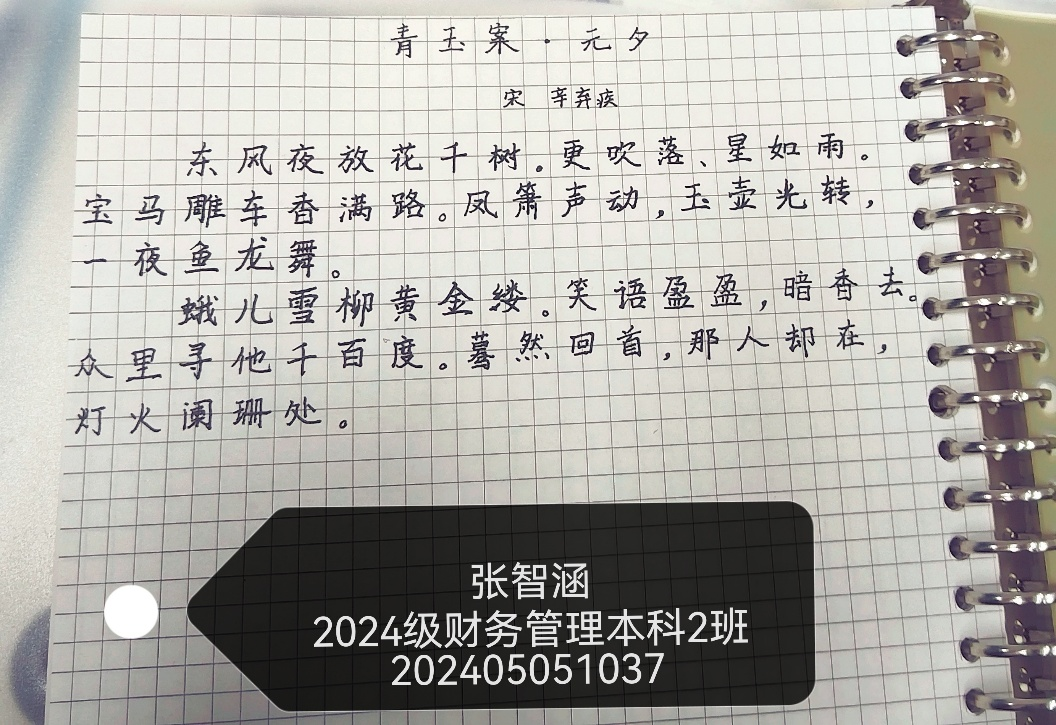 青玉案·元夕
宋 辛弃疾
东风夜放花千树。更吹落、星如雨。
宝马雕车香满路。凤箫声动,玉壶光转,
一夜鱼龙舞。
蛾儿雪柳黄金缕。笑语盈盈,暗香去。
众里寻他千百度。蓦然回首,那人却在,
灯火阑珊处。
张智涵
2024级财务管理本科2班
202405051037